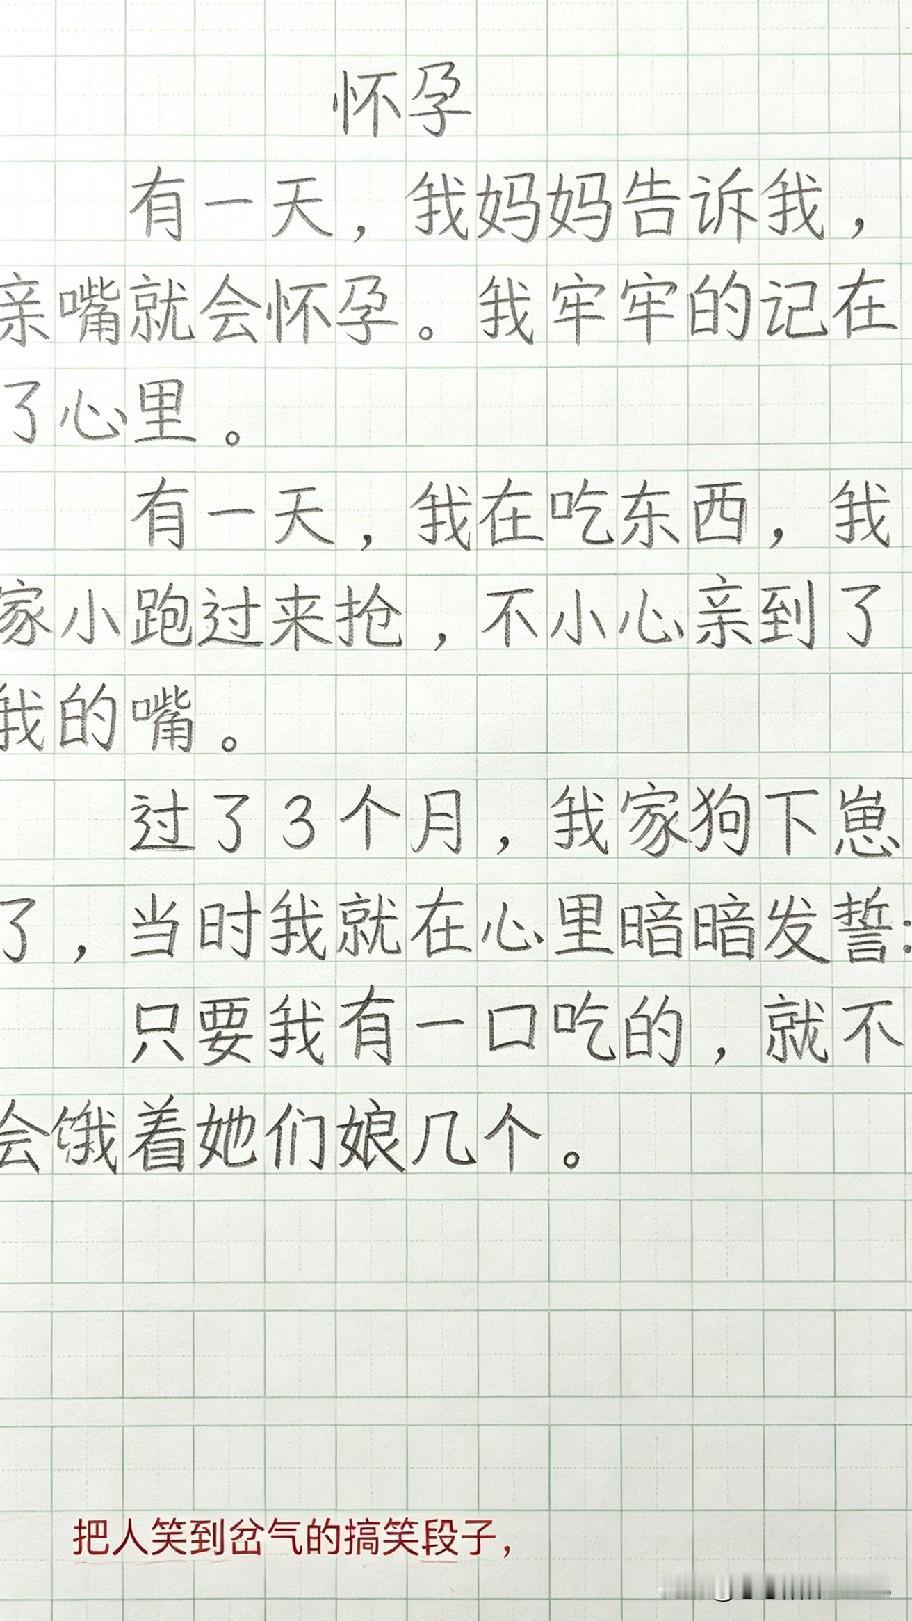 怀孕
有一天，我妈妈告诉我，
亲嘴就会怀孕。我牢牢的记在
了心里。
有一天，我在吃东西，我
家小跑过来抢，不小心亲到了
我的嘴。
过了3个月，我家狗下崽
了，当时我就在心里暗暗发誓：
只要我有一口吃的，就不
会饿着她们娘几个。
把人笑到岔气的搞笑段子，